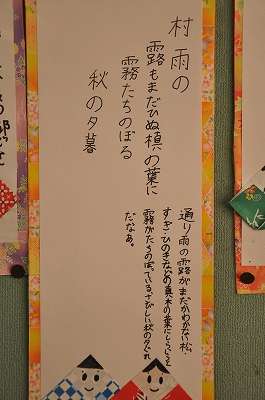 村雨の
露もまだひぬ槙の葉に
霧たちのぼる
秋の夕暮
通り雨の露がまだかわかない松、
すぎ・ひのきなどの真木の葉に
霧がたちのぼっている、さびしい秋の夕ぐれ
だなあ。